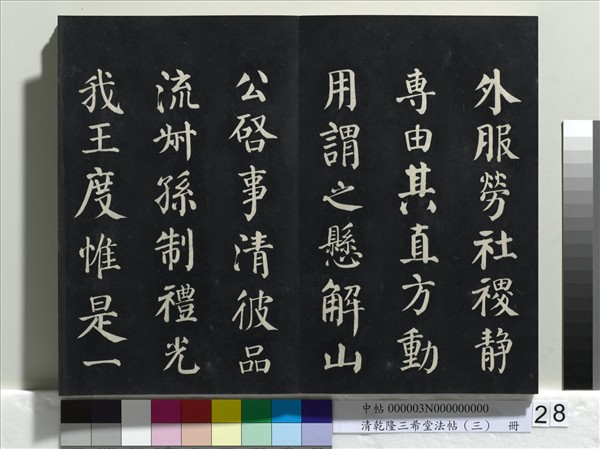 外服勞社稷静
専由其直方動
用謂之懸解山
公啓事清彼品
流舛孫制禮光
我王度惟是一
中帖 000003N000000000
清乾隆三希堂法帖（三） 冊
28